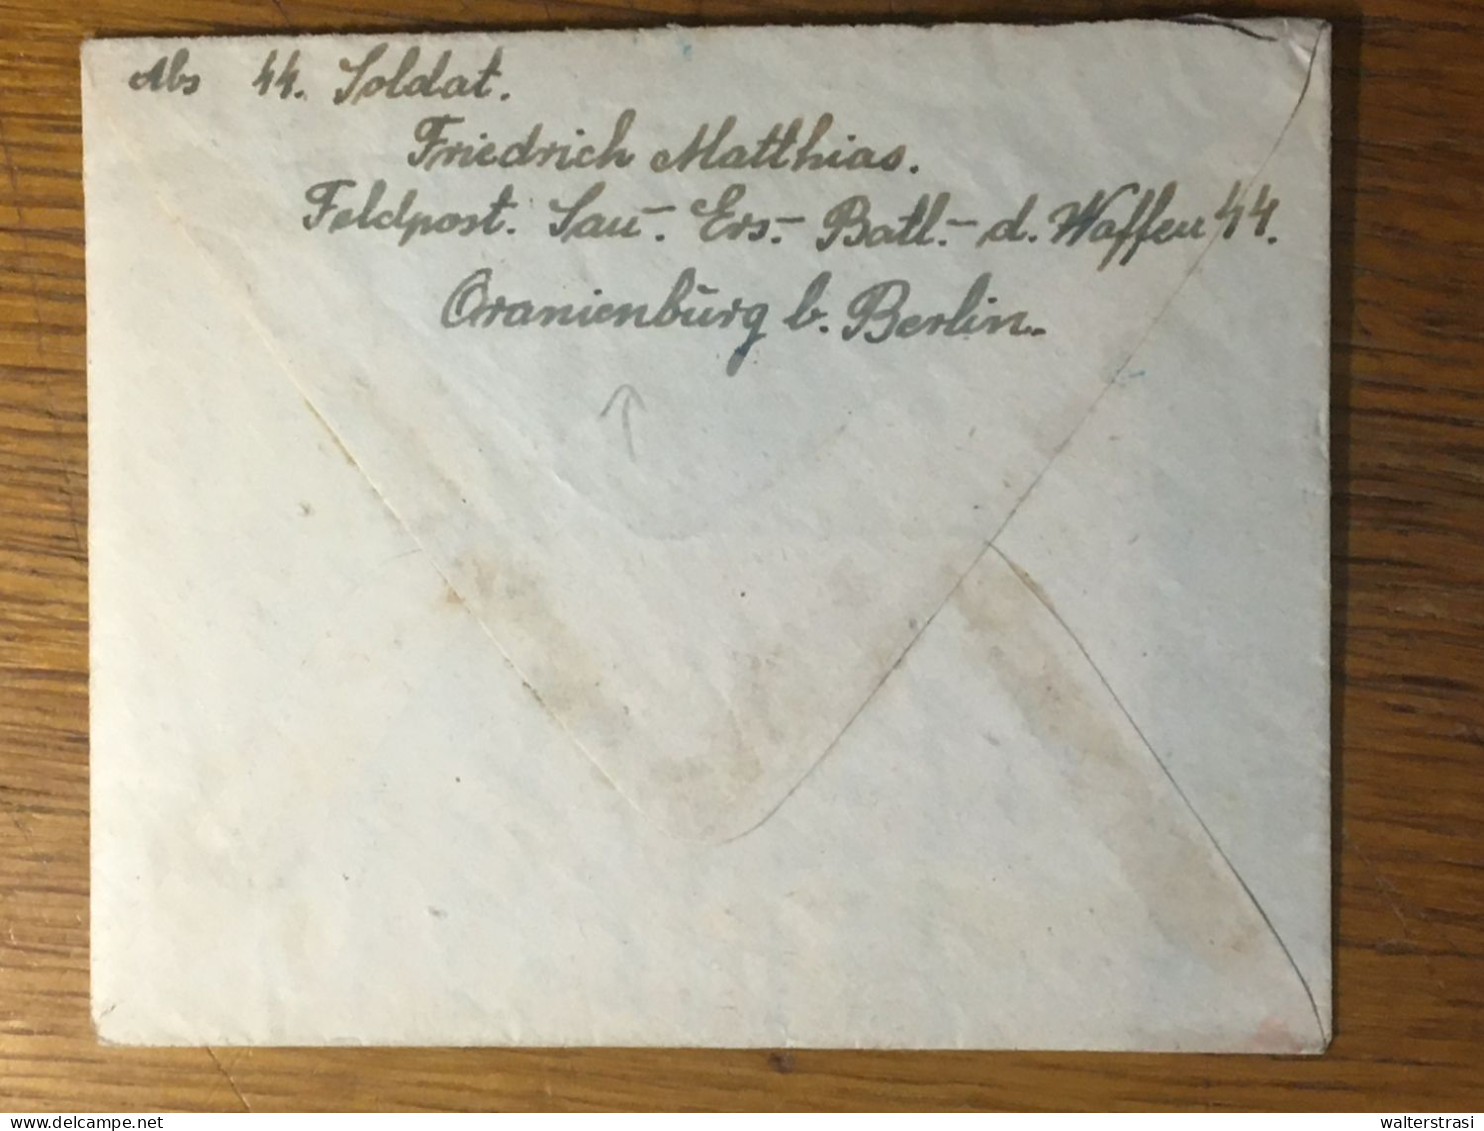 Abs 44. Soldat.
Friedrich Matthias.
Feldpost. Sau-. Ers.- Batl.- d. Waffen 44.
Oranienburg b. Berlin.
walterstrasi
delcampe.net